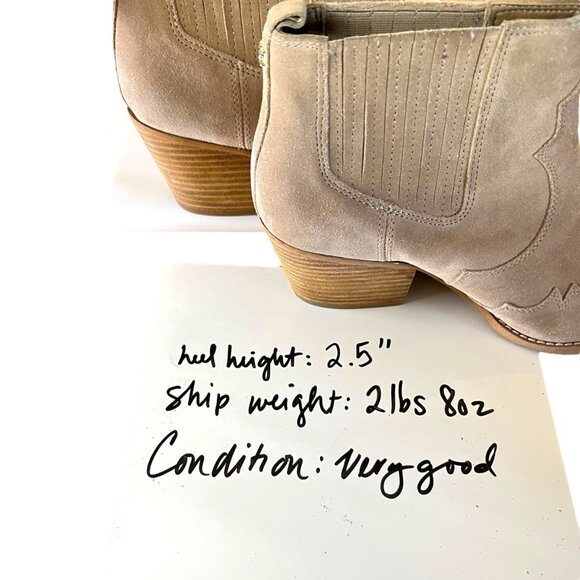 heel height: 2.5"
ship weight: 2lbs 8oz
Condition: very good